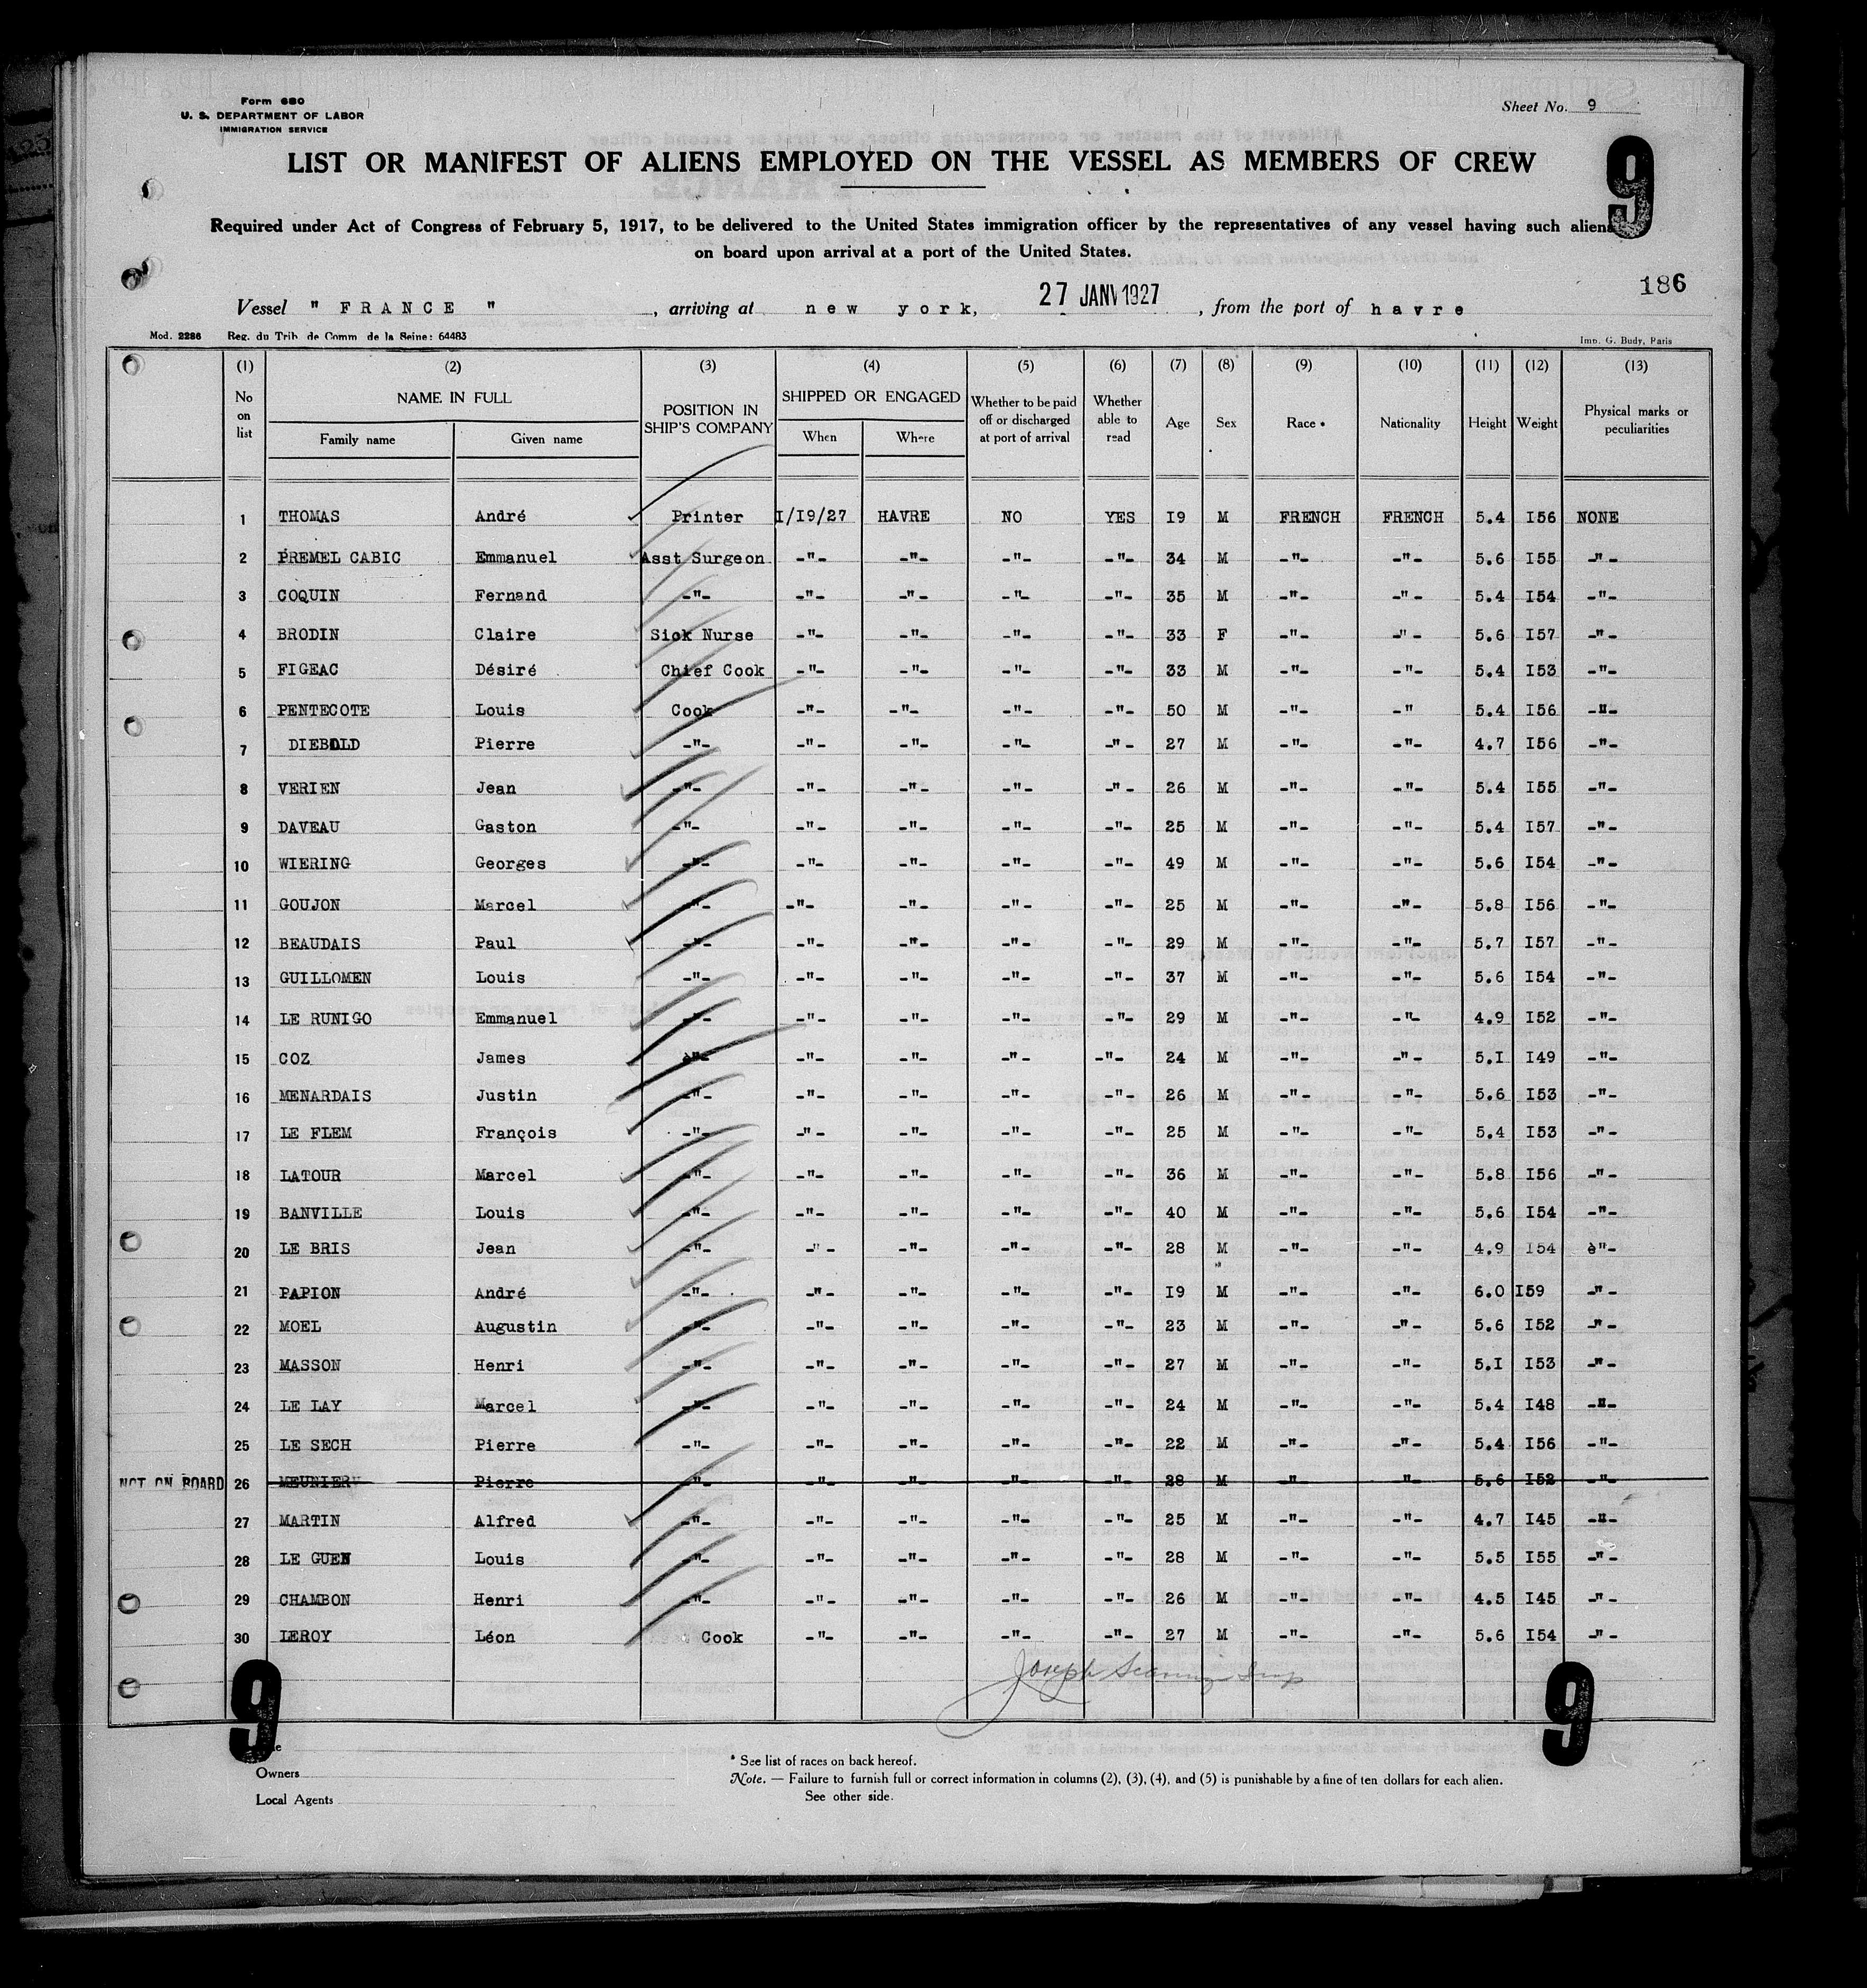 Form 680
U. S. DEPARTMENT OF LABOR
IMMIGRATION SERVICE
Sheet No. 9
9
LIST OR MANIFEST OF ALIENS EMPLOYED ON THE VESSEL AS MEMBERS OF CREW
Required under Act of Congress of February 5, 1917, to be delivered to the United States immigration officer by the representatives of any vessel having such aliens
on board upon arrival at a port of the United States.
186
Vessel " FRANCE " , arriving at new york, 27 JANV 1927 , from the port of havre
Mod. 2286 Reg. du Trib. de Comm. de la Seine: 64483 Imp. G. Budy, Paris
(1) (2) (3) (4) (5) (6) (7) (8) (9) (10) (11) (12) (13)
No on list NAME IN FULL Family name Given name POSITION IN SHIP'S COMPANY SHIPPED OR ENGAGED When Where Whether to be paid off or discharged at port of arrival Whether able to read Age Sex Race * Nationality Height Weight Physical marks or peculiarities
1 THOMAS André Printer I/I9/27 HAVRE NO YES I9 M FRENCH FRENCH 5.4 I56 NONE
2 PREMEL CABIC Emmanuel Asst Surgeon -"- -"- -"- -"- 34 M -"- -"- 5.6 I55 -"-
3 COQUIN Fernand -"- -"- -"- -"- -"- 35 M -"- -"- 5.4 I54 -"-
4 BRODIN Claire Sick Nurse -"- -"- -"- -"- 33 F -"- -"- 5.6 I57 -"-
5 FIGEAC Désiré Chief Cook -"- -"- -"- -"- 33 M -"- -"- 5.4 I53 -"-
6 PENTECOTE Louis Cook -"- -"- -"- -"- 50 M -"- -" 5.4 I56 -"-
7 DIEBOLD Pierre -"- -"- -"- -"- -"- 27 M -"- -"- 4.7 I56 -"-
8 VERIEN Jean -"- -"- -"- -"- -"- 26 M -"- -"- 5.4 I55 -"-
9 DAVEAU Gaston -"- -"- -"- -"- -"- 25 M -"- -"- 5.4 I57 -"-
10 WIERING Georges -"- -"- -"- -"- -"- 49 M -"- -"- 5.6 I54 -"-
11 GOUJON Marcel -"- -"- -"- -"- -"- 25 M -"- -"- 5.8 I56 -"-
12 BEAUDAIS Paul -"- -"- -"- -"- -"- 29 M -"- -"- 5.7 I57 -"-
13 GUILLOMEN Louis -"- -"- -"- -"- -"- 37 M -"- -"- 5.6 I54 -"-
14 LE RUNIGO Emmanuel -"- -"- -"- -"- -"- 29 M -"- -"- 4.9 I52 -"-
15 COZ James è"- -"- -"- -"- -"- 24 M -"- -"- 5.I I49 -"-
16 MENARDAIS Justin -"- -"- -"- -"- -"- 26 M -"- -"- 5.6 I53 -"-
17 LE FLEM François -"- -"- -"- -"- -"- 25 M -"- -"- 5.4 I53 -"-
18 LATOUR Marcel -"- -"- -"- -"- -"- 36 M -"- -"- 5.8 I56 -"-
19 BANVILLE Louis -"- -"- -"- -"- -"- 40 M -"- -"- 5.6 I54 -"-
20 LE BRIS Jean -"- -"- -"- -"- -"- 28 M -"- -"- 4.9 I54 è"-
21 PAPION André -"- -"- -"- -"- -"- I9 M -"- -"- 6.0 I59 -"-
22 MOEL Augustin -"- -"- -"- -"- -"- 23 M -"- -"- 5.6 I52 -"-
23 MASSON Henri -"- -"- -"- -"- -"- 27 M -"- -"- 5.I I53 -"-
24 LE LAY Marcel -"- -"- -"- -"- -"- 24 M -"- -"- 5.4 I48 -"-
25 LE SECH Pierre -"- -"- -"- -"- -"- 22 M -"- -"- 5.4 I56 -"-
NOT ON BOARD 26 MEUNIER Pierre -"- -"- -"- -"- -"- 28 M -"- -"- 5.6 I52 -"-
27 MARTIN Alfred -"- -"- -"- -"- -"- 25 M -"- -"- 4.7 I45 -"-
28 LE GUEN Louis -"- -"- -"- -"- -"- 28 M -"- -"- 5.5 I55 -"-
29 CHAMBON Henri -"- -"- -"- -"- -"- 26 M -"- -"- 4.5 I45 -"-
30 LEROY Léon Cook -"- -"- -"- -"- 27 M -"- -"- 5.6 I54 -"-
Joseph
9 9
Owners
Local Agents
* See list of races on back hereof.
Note. — Failure to furnish full or correct information in columns (2), (3), (4), and (5) is punishable by a fine of ten dollars for each alien.
See other side.